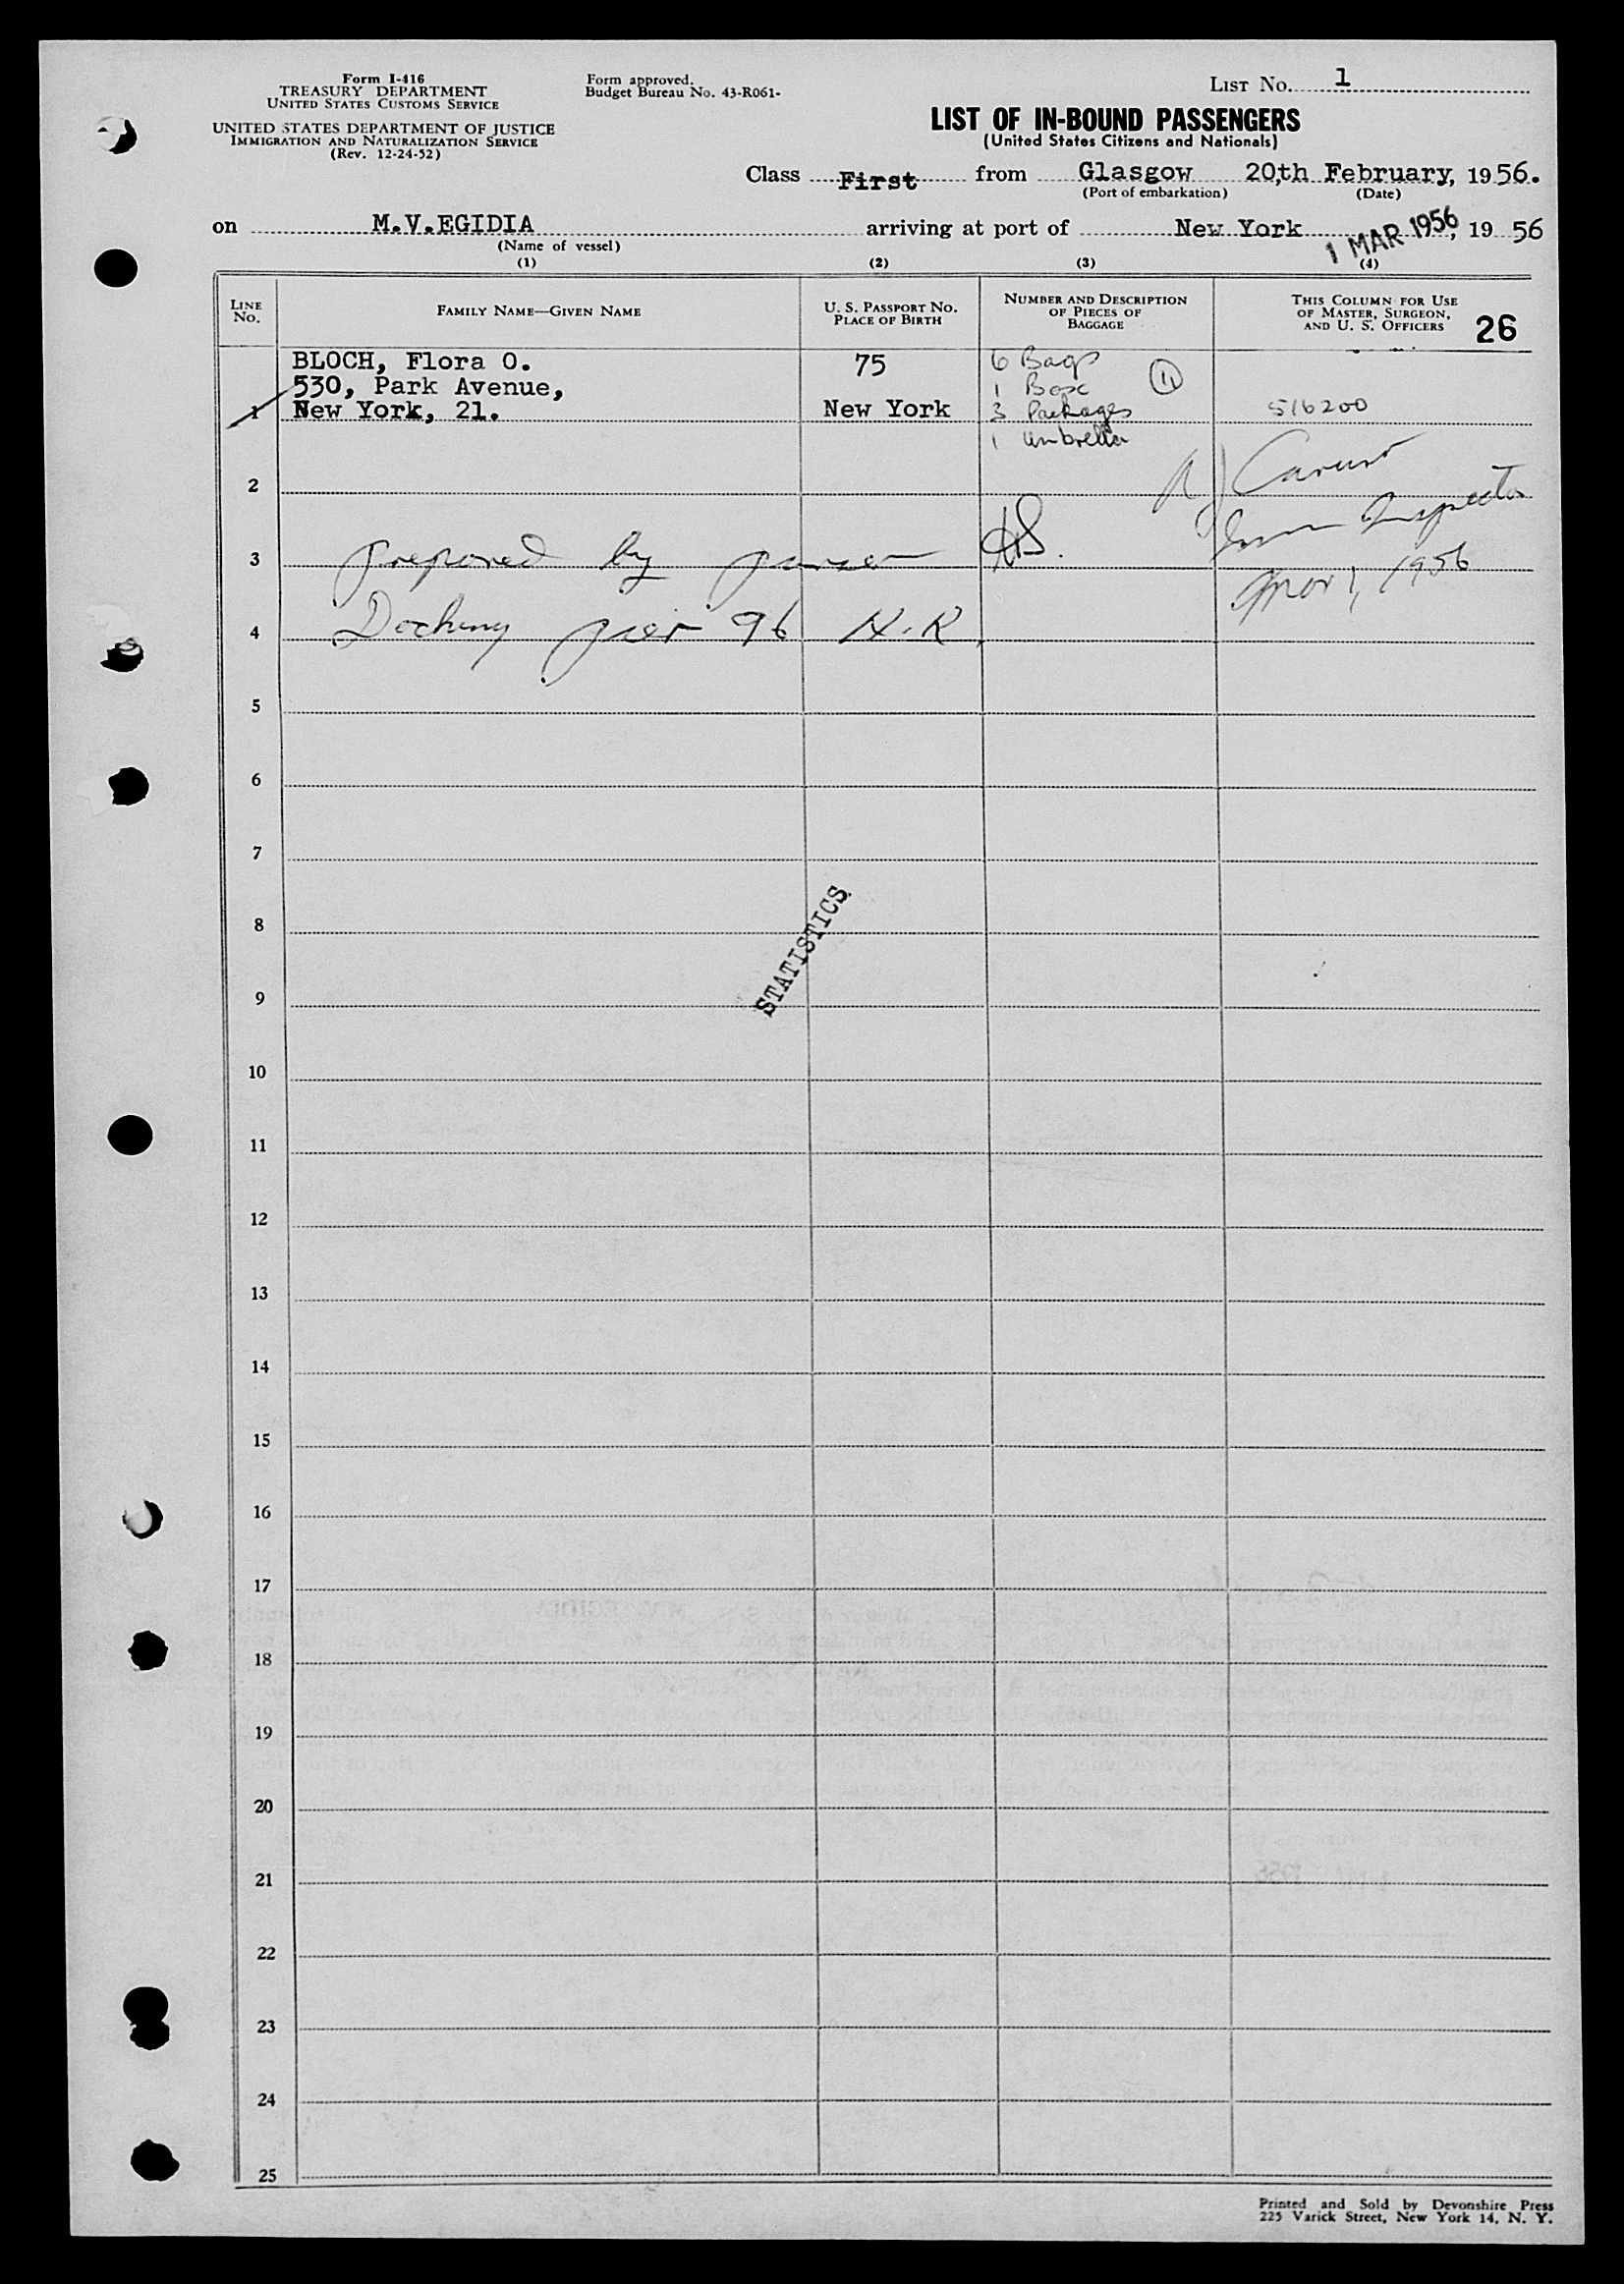 Form I-416
TREASURY DEPARTMENT
UNITED STATES CUSTOMS SERVICE
UNITED STATES DEPARTMENT OF JUSTICE
IMMIGRATION AND NATURALIZATION SERVICE
(Rev. 12-24-52)
Form approved.
Budget Bureau No. 43-R061-
LIST No. 1
LIST OF IN-BOUND PASSENGERS
(United States Citizens and Nationals)
Class First from Glasgow 20,th February, 1956.
(Port of embarkation) (Date)
on M.V.EGIDIA arriving at port of New York 1 MAR 1956, 1956
(Name of vessel)
(1) (2) (3) (4)
LINE No. FAMILY NAME—GIVEN NAME U. S. PASSPORT No. PLACE OF BIRTH NUMBER AND DESCRIPTION OF PIECES OF BAGGAGE THIS COLUMN FOR USE OF MASTER, SURGEON, AND U. S. OFFICERS 26
BLOCH, Flora O. 75 6 Bags
530, Park Avenue, 1 Box 11
1 New York, 21. New York 3 Packages 516200
1 umbrella
Caruso
2
Inspector
3 prepared by purser
Mar 1, 1956
4 Docking pier 96 N.R.
5
6
7
8
STATISTICS
9
10
11
12
13
14
15
16
17
18
19
20
21
22
23
24
25
Printed and Sold by Devonshire Press
225 Varick Street, New York 14, N. Y.